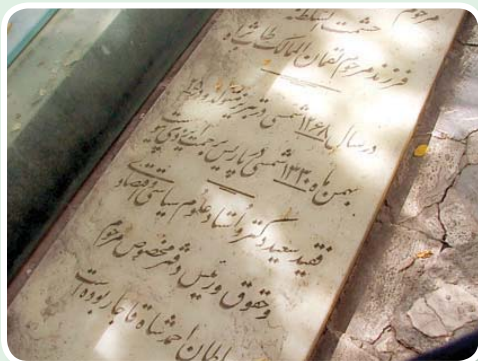 مرحوم
حشمت السلطنه
فرزند مرحوم لقمان الممالک طبیب شاه
در سال ۱۲۶۸ شمسی در تبریز متولد و در
بهمن ماه ۱۳۳۰ شمسی در پاریس برحمت ایزدی پیوست
فقید سعید دکتر و استاد علوم سیاسی و اقتصادی
و حقوق و رئیس دفتر مخصوص مرحوم
سلطان احمد شاه قاجار بوده است